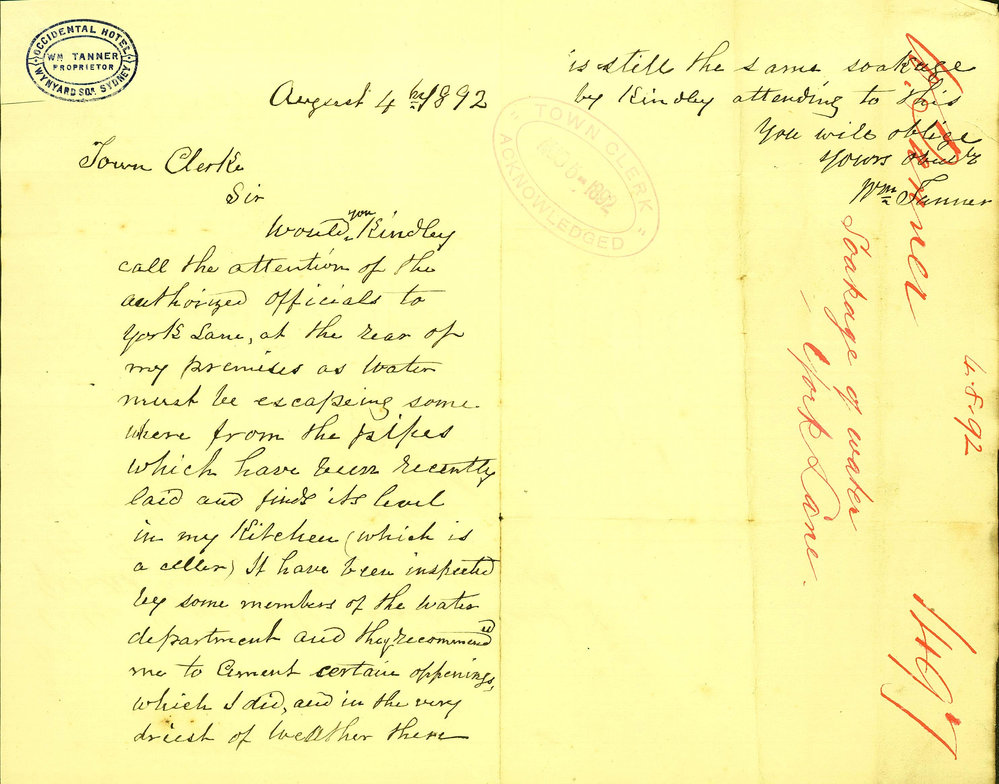 OCCIDENTAL HOTEL
WM TANNER
PROPRIETOR
WYNYARD SQR. SYDNEY
August 4th 1892
Town Clerke
Sir
Would you Kindley
call the attention of the
authorized officials to
York Lane, at the rear of
my premises as water
must be escapeing some
where from the pipes
which have been recently
laid and finds its level
in my Kitchen (which is
a celler) It have been inspected
by some members of the water
department and they recommended
me to Cement certain oppenings,
which I did, and in the very
driest of weather there
is still the same soakage
by Kindley attending to this
you will oblige
yours
Wm Tanner
TOWN CLERK
5 - 1892
ACKNOWLEDGED
W. Tanner
Soakage of water
York Lane.
4.8.92